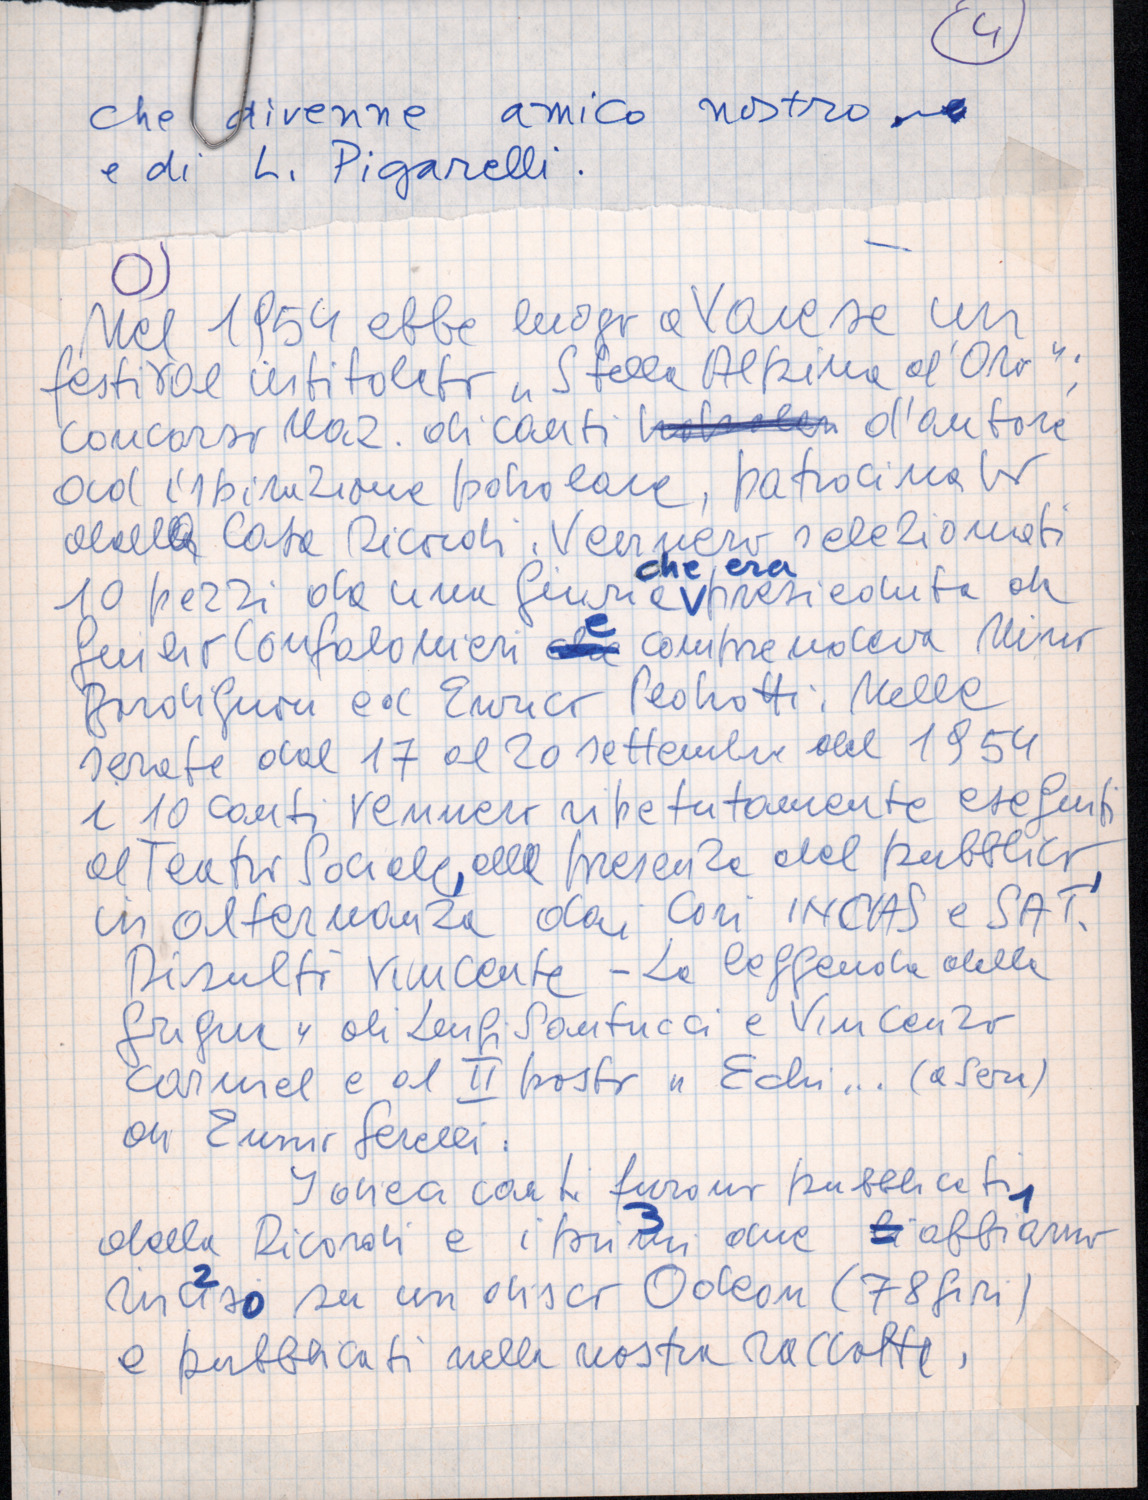 4
che divenne amico nostro
e di L. Pigarelli.
O)
Nel 1954 ebbe luogo a Varese un
festival intitolato "Stella Alpina d'Oro";
concorso Naz. di canti popolari d'autore
ad ispirazione popolare, patrocinato
dalla Casa Ricordi. Vennero selezionati
che era
10 pezzi da una giuria V presieduta da
e
Giulio Confalonieri che comprendeva Nino
Bordignon ed Enrico Pedrotti. Nelle
serate dal 17 al 20 settembre del 1954
i 10 canti vennero ripetutamente eseguiti
al Teatro Sociale, alla presenza del pubblico,
in alternanza dai Cori INCAS e SAT.
Risultò vincente - La leggenda della
Grigna" di Luigi Santucci e Vincenzo
Carniel e al II posto " Echi... (a sera)
di Ennio Gerelli.
I dieci canti furono pubblicati
1
3
dalla Ricordi e i primi due li abbiamo
2
inciso su un disco Odeon (78 giri)
e pubblicati nelle nostra raccolte.